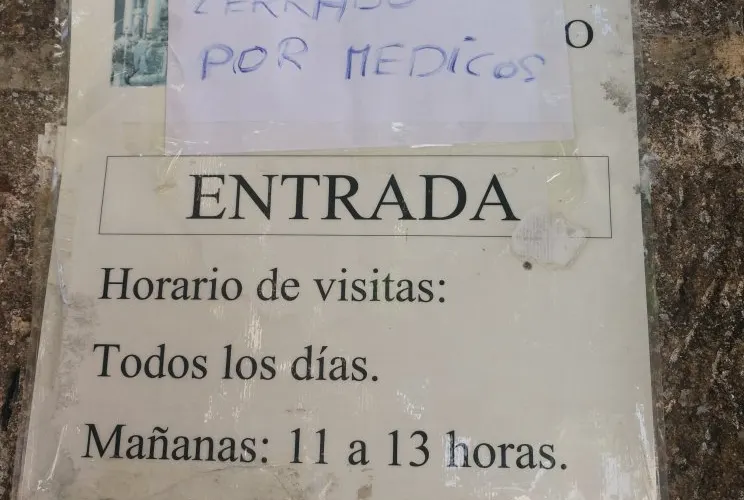 CERRADO
O
POR MEDICOS
ENTRADA
Horario de visitas:
Todos los días.
Mañanas: 11 a 13 horas.